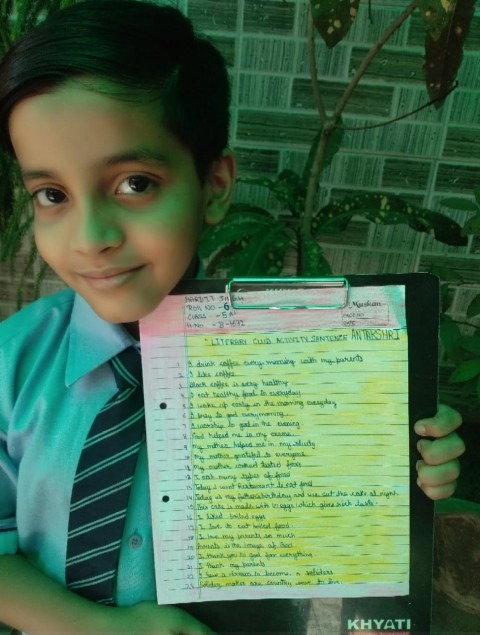 ROLL NO - 6
CLASS - 5 A
Muskan
PAGE NO.
DATE
"LITERARY CLUB ACTIVITY SENTENCE ANTAKSHRI
1. I drink coffee every morning with my parents
2. I like coffee
3. Black coffee is very healthy
4. I eat healthy food to everyday
5. I wake up early in the morning everyday
6. I pray to god every morning
7. I worship to god in the evening.
8. God helped me in my exams
9. my mother helped me in my study
10. My mother grateful to everyone
11. my mother cooked tasted food
12. I eat many types of food
13. Today I went Restaurant to eat food
14. Today is my father birthday and we cut the cake at night.
15. This cake is made with eggs which gives rich taste.
16. I liked boiled eggs
17. I love to eat boiled food
18. I love my parents so much
19. Parents is the image of God
20. I thank you to god for everything
21. I thank my parents
22. I have a dream to become a soldiers
23. Soldiers makes are country save to live.
KHYATI